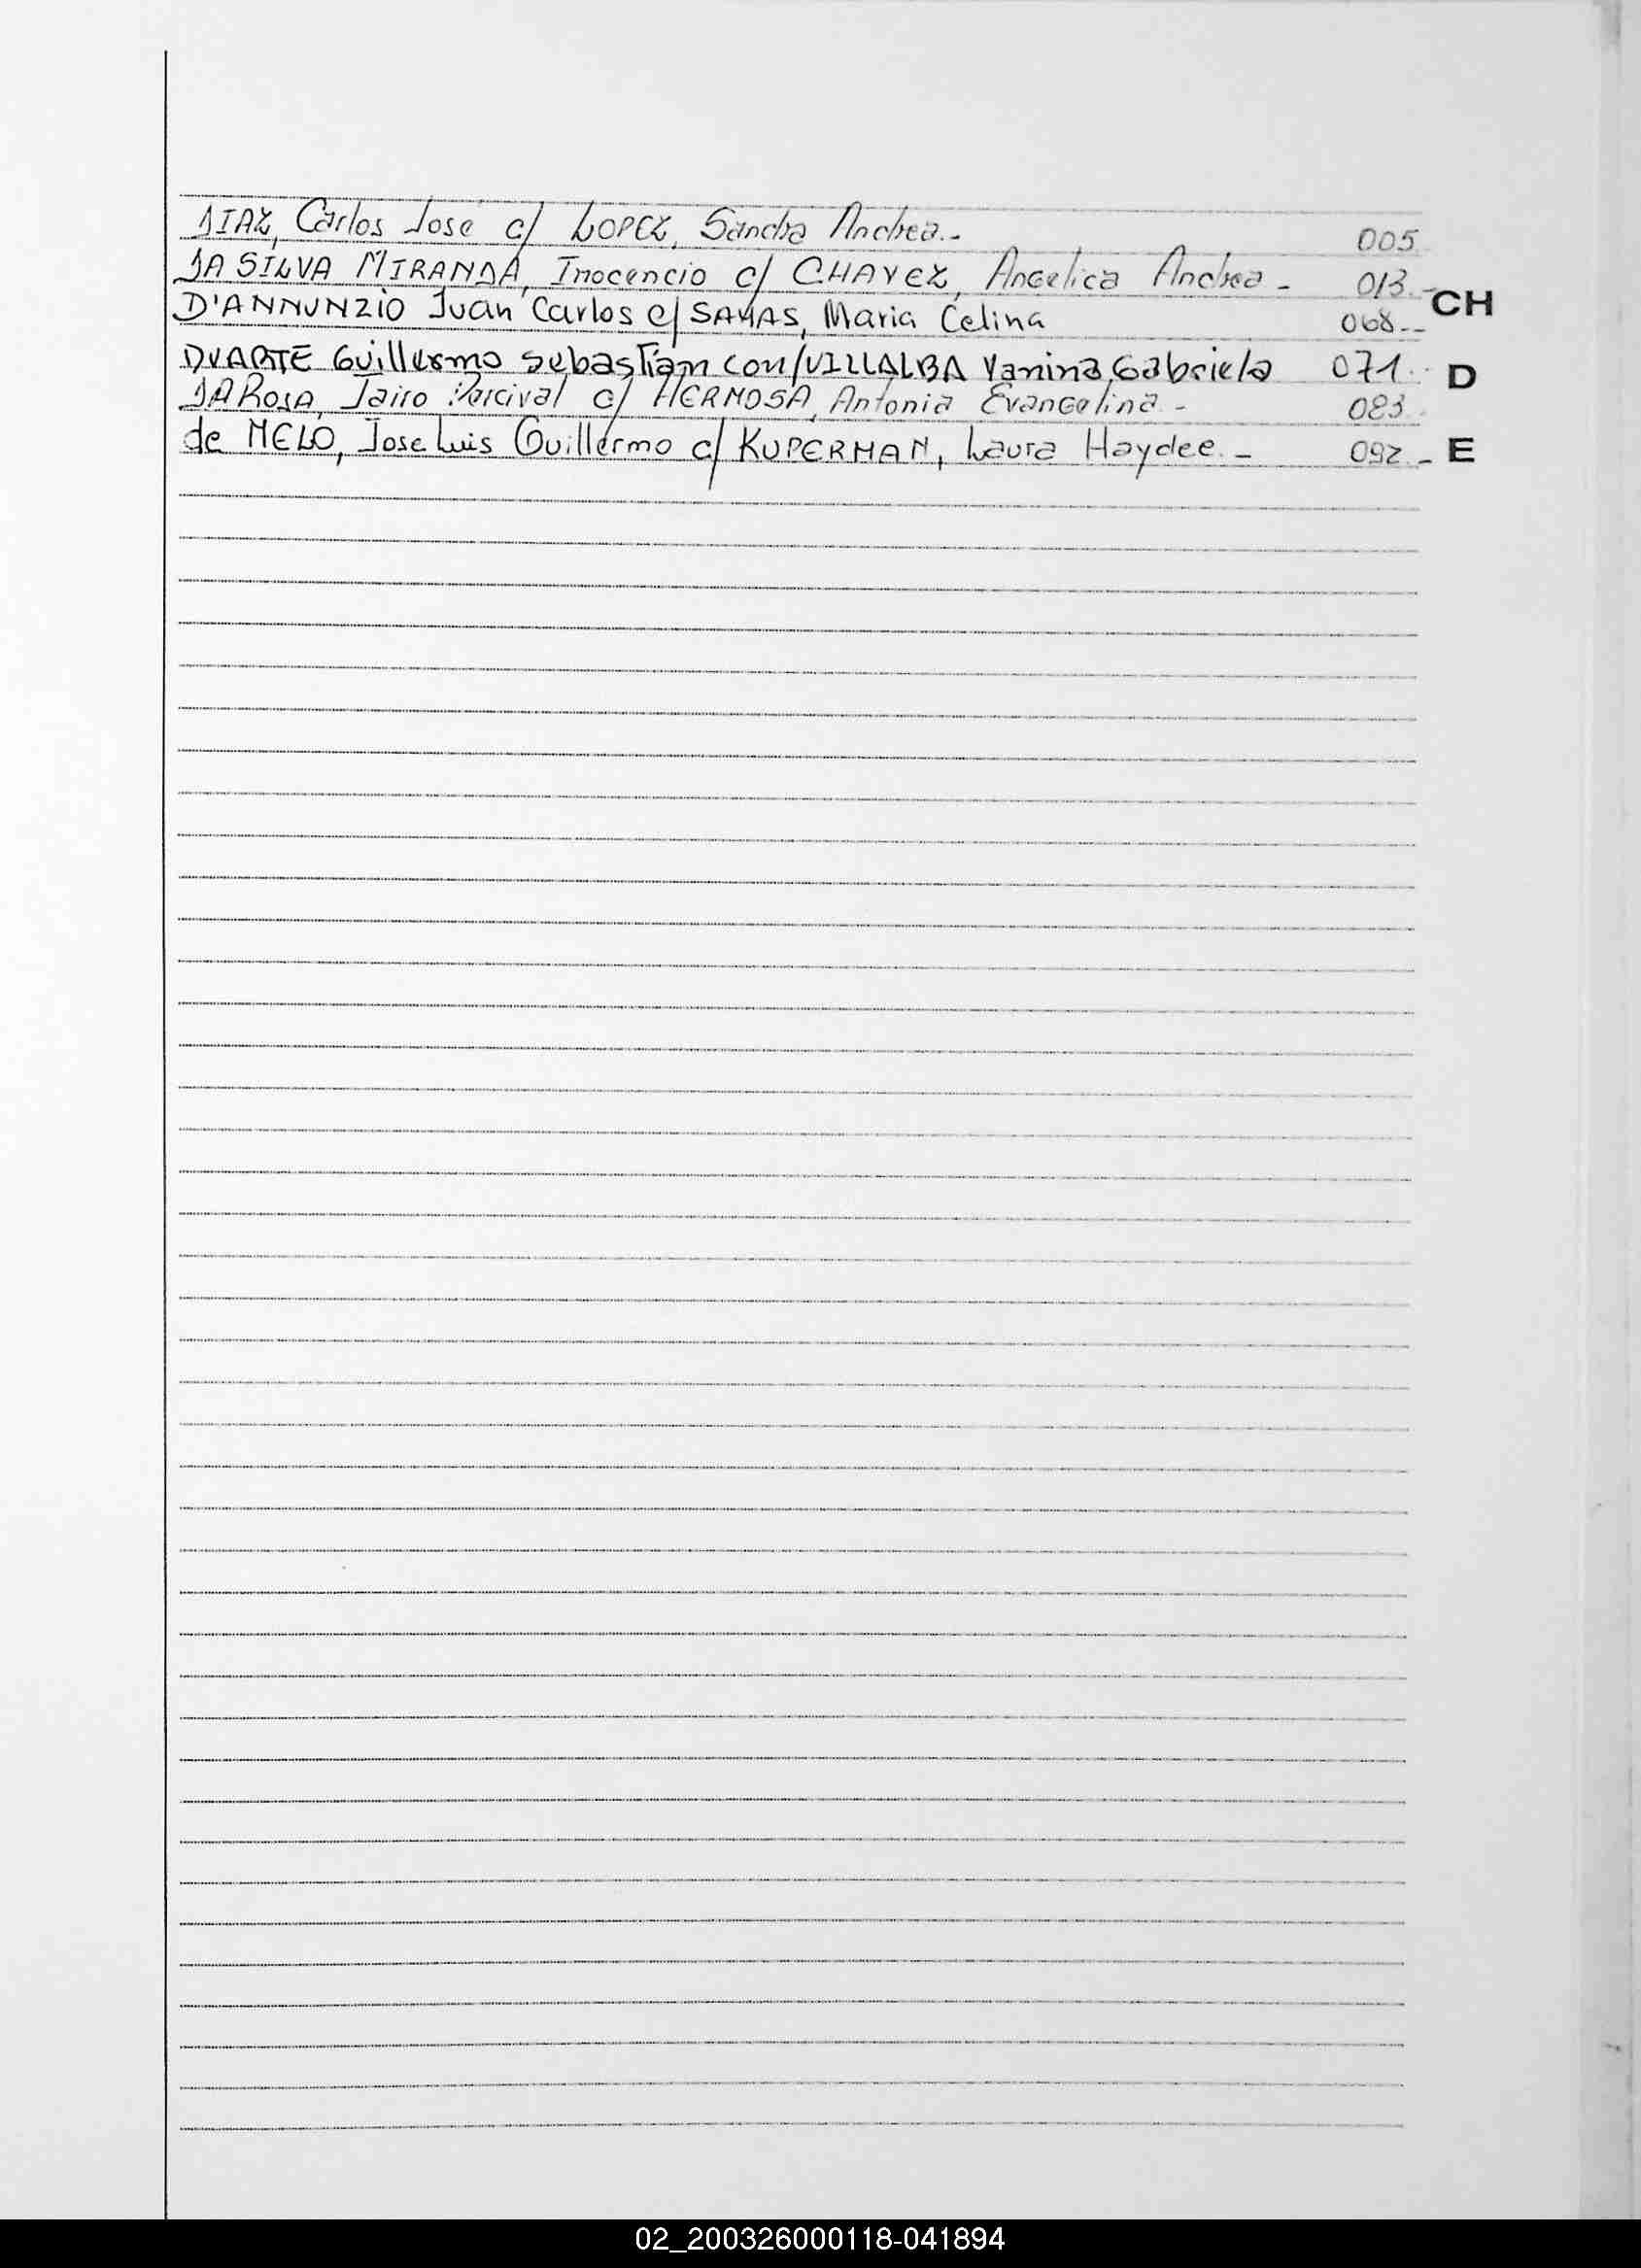 DIAZ, Carlos José c/ LOPEZ, Sandra Andrea.- 005
DA SILVA MIRANDA, Inocencio c/ CHAVEZ, Angelica Andrea - 013.-
CH
D'ANNUNZIO Juan Carlos c/ SAMAS, Maria Celina 068.-
DUARTE Guillermo Sebastian con/VILLALBA Yanina Gabriela 071.
D
DA ROSA, Jairo Percival c/ HERMOSA, Antonia Evangelina - 083.
de MELO, Jose Luis Guillermo c/ KUPERMAN, Laura Haydee.- 092.-
E
02_200326000118-041894